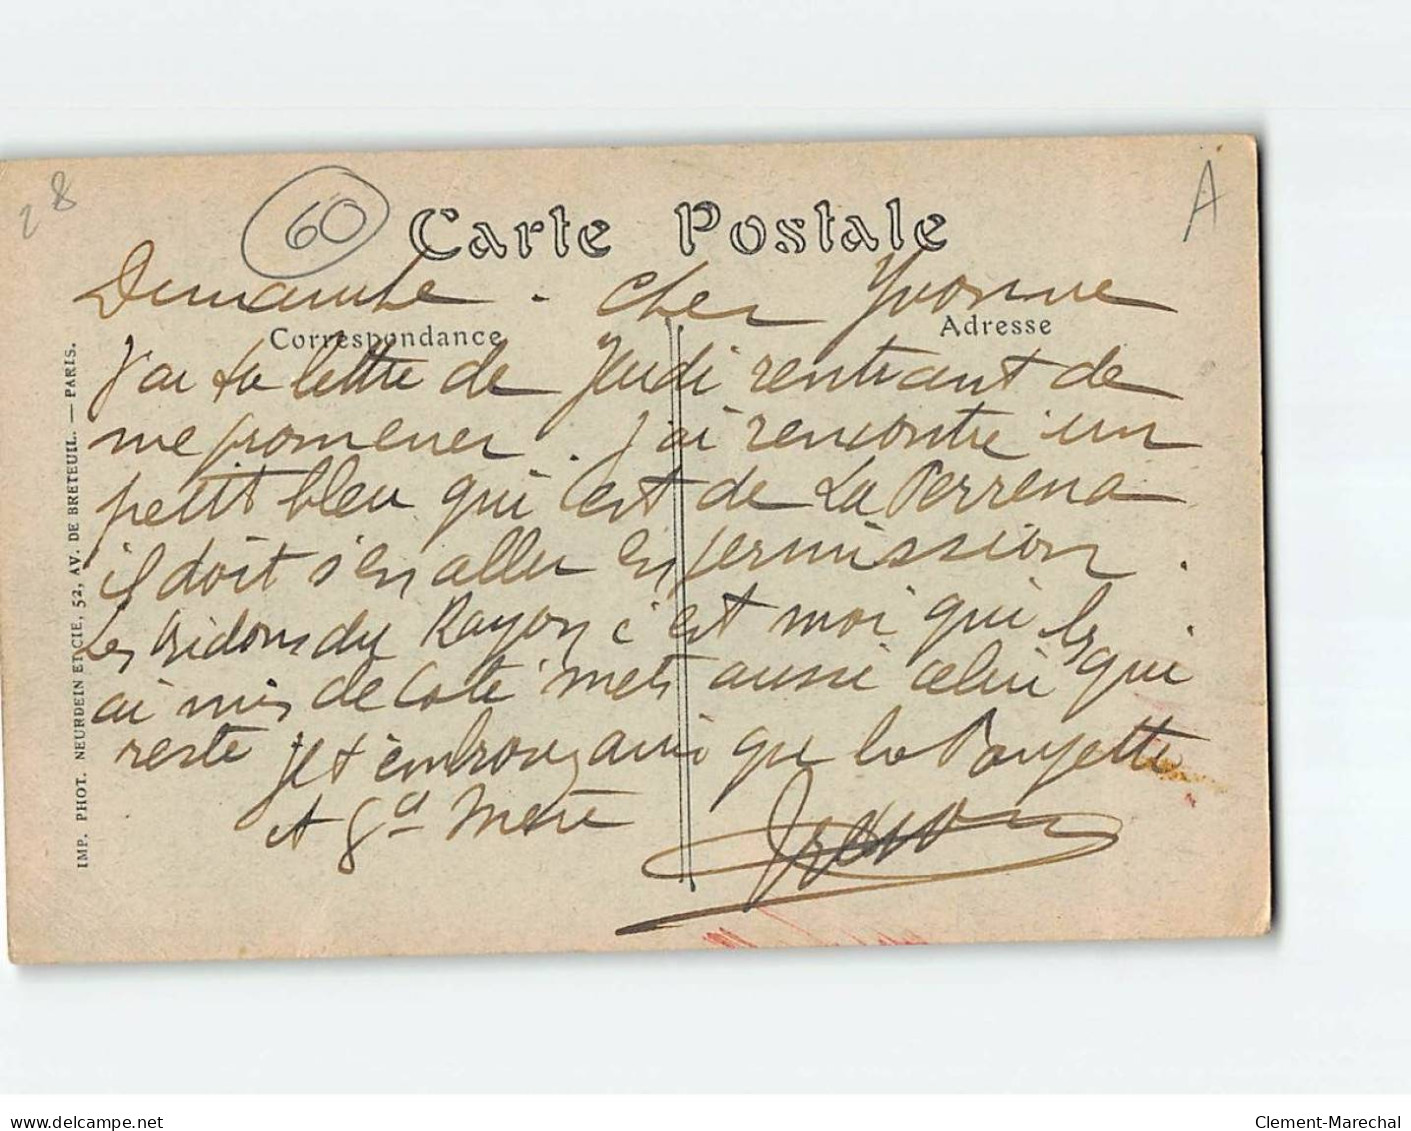 28
60
A
Carte Postale
Dimanche - Cher Yvonne
Correspondance
Adresse
J'ai ta lettre de Jeudi rentrant de
me promener. J'ai rencontré un
petit bleu qui c'est de La Perrena
il doit s'en aller en permission.
Les Bidons du Rayon c'est moi qui les
ai mis de coté mets aussi celui qui
reste je t'embrasse ainsi que la
et Gd Mère
IMP. PHOT. NEURDEIN ET CIE, 52, AV. DE BRETEUIL. — PARIS.
delcampe.net
Clement-Marechal